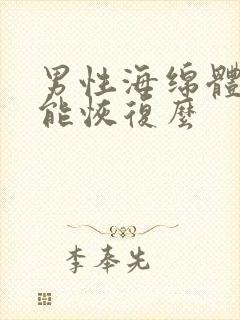 男性海绵體
能恢復麼
李奉先